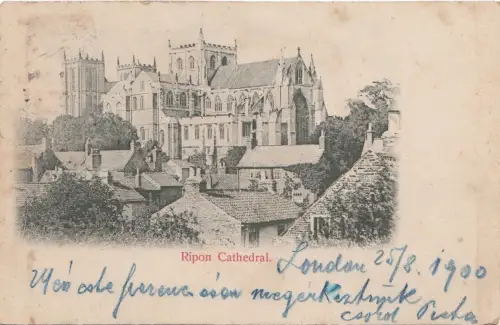 Ripon Cathedral.
London 25/8. 1900
este
megérkeztünk
csókol Pista